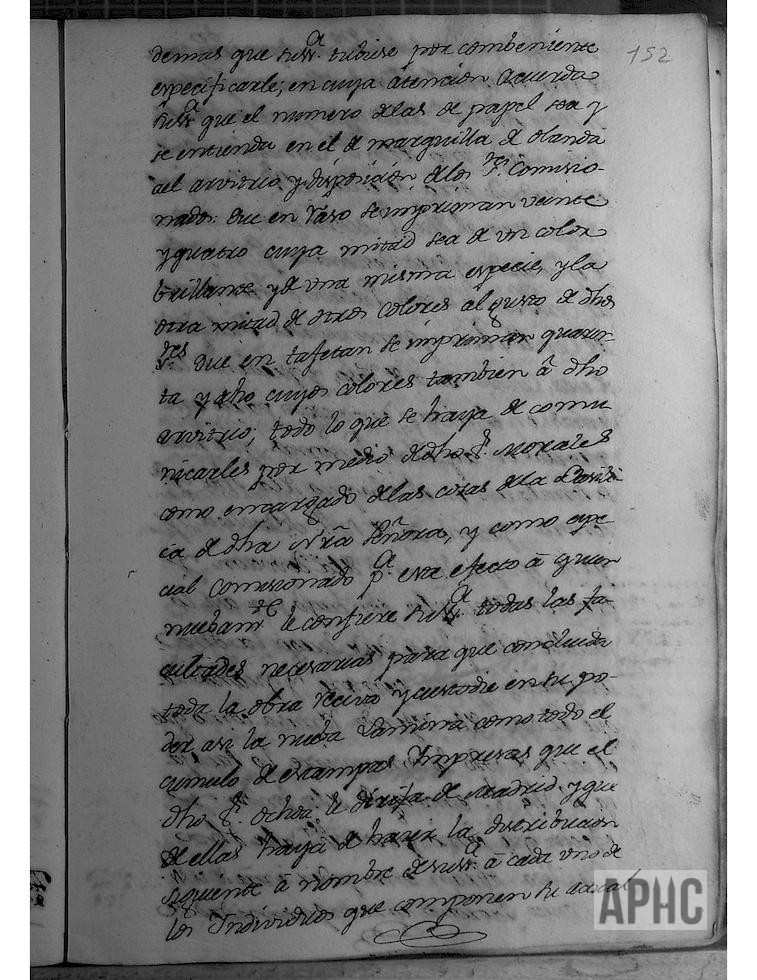 152
demas que SSSª. tubiese por combeniente
especificarle; en cuya atencion acuerda
SSSª que el numero de las de papel sea y
se entienda en el de marquilla de olanda
al arvitrio y disposición de los Sres Comisio-
nados: Que en raso se impriman veinte
y quatro cuya mitad sea de vn color
brillante y de vna misma especie, y la
otra mitad de otros colores al gusto de dhos
Sres Que en tafetan se impriman quaren-
ta y ocho cuyos colores tambien â dho
arvitrio; todo lo que se haya de comu
nicarles por medio de dho Sr. Morales
como encargado de las cosas de la
cia de dha Nrâ Señora, y como espe
cial Comisionado pª. este efecto â quien
nuebamte le confiere SSSª todas las fa-
cultades necesarias para que concluida
toda la obra reciva y custodie en su po-
der asi la nueba Lamina como todo el
cumulo de estampas Impresas que el
dho Sr. Ochoa le dirija de Madrid y que
de ellas haya de hacer la distribucion
siguiente â nombre de SSSª. â cada vno de
los Individuos que componen su actual
APHC